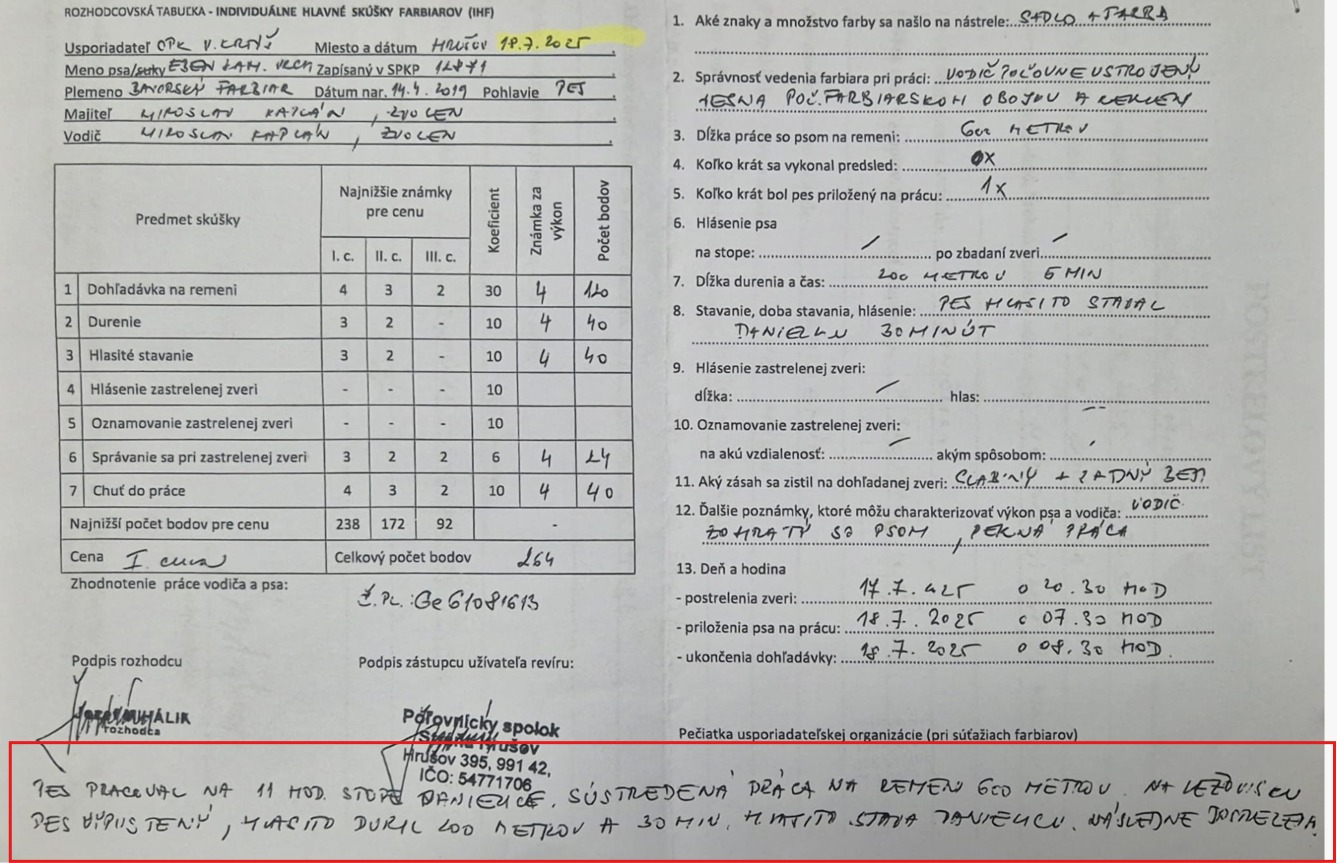 ROZHODCOVSKÁ TABUĽKA - INDIVIDUÁLNE HLAVNÉ SKÚŠKY FARBIAROV (IHF)
Usporiadateľ OPK V. KRTÍŠ Miesto a dátum HRUŠOV 18.7.2025
Meno psa/suky EBEN Zapísaný v SPKP
Plemeno BAVORSKÝ FARBIAR Dátum nar. 14.4.2019 Pohlavie PES
Majiteľ MIROSLAV KAPLÁN, ZVOLEN
Vodič MIROSLAV KAPLÁN, ZVOLEN
Predmet skúšky Najnižšie známky pre cenu Koeficient Známka za výkon Počet bodov
I. c. II. c. III. c.
1 Dohľadávka na remeni 4 3 2 30 4 120
2 Durenie 3 2 - 10 4 40
3 Hlasité stavanie 3 2 - 10 4 40
4 Hlásenie zastrelenej zveri - - - 10
5 Oznamovanie zastrelenej zveri - - - 10
6 Správanie sa pri zastrelenej zveri 3 2 2 6 4 24
7 Chuť do práce 4 3 2 10 4 40
Najnižší počet bodov pre cenu 238 172 92 -
Cena I. cena Celkový počet bodov 264
Zhodnotenie práce vodiča a psa:
Č. PL.: Ge 61081613
Podpis rozhodcu Podpis zástupcu užívateľa revíru:
MIHÁLIK
rozhodca
Poľovnícky spolok
Hrušov
Hrušov 395, 991 42,
IČO: 54771706
1. Aké znaky a množstvo farby sa našlo na nástrele: SADLO + FARBA
2. Správnosť vedenia farbiara pri práci: VODIČ POĽOVNE USTROJENÝ
POČ. FARBIARSKOM OBOJKU A REMENI
3. Dĺžka práce so psom na remeni: 600 METROV
4. Koľko krát sa vykonal predsled: 0X
5. Koľko krát bol pes priložený na prácu: 1X
6. Hlásenie psa
na stope: / po zbadaní zveri /
7. Dĺžka durenia a čas: 200 METROV 5 MIN
8. Stavanie, doba stavania, hlásenie: PES HLASITO STAVAL
DANIELKU 30 MINÚT
9. Hlásenie zastrelenej zveri:
dĺžka: / hlas:
10. Oznamovanie zastrelenej zveri:
na akú vzdialenosť: akým spôsobom:
11. Aký zásah sa zistil na dohľadanej zveri: SLABINY + ZADNÝ BEH
12. Ďalšie poznámky, ktoré môžu charakterizovať výkon psa a vodiča: VODIČ
ZOHRATÝ SO PSOM, PEKNÁ PRÁCA
13. Deň a hodina
- postrelenia zveri: 17.7.2025 o 20.30 HOD
- priloženia psa na prácu: 18.7.2025 o 07.30 HOD
- ukončenia dohľadávky: 18.7.2025 o 08.30 HOD.
Pečiatka usporiadateľskej organizácie (pri súťažiach farbiarov)
PES PRACOVAL NA 11 HOD. STOPE DANIELICE. SÚSTREDENÁ PRÁCA NA REMENI 600 METROV. NA LEŽOVISKU
PES VYPUSTENÝ, HLASITO DURIL 200 METROV A 30 MIN. HLASITO STAVAL DANIELICU. NÁSLEDNE DOSTRELENÁ.